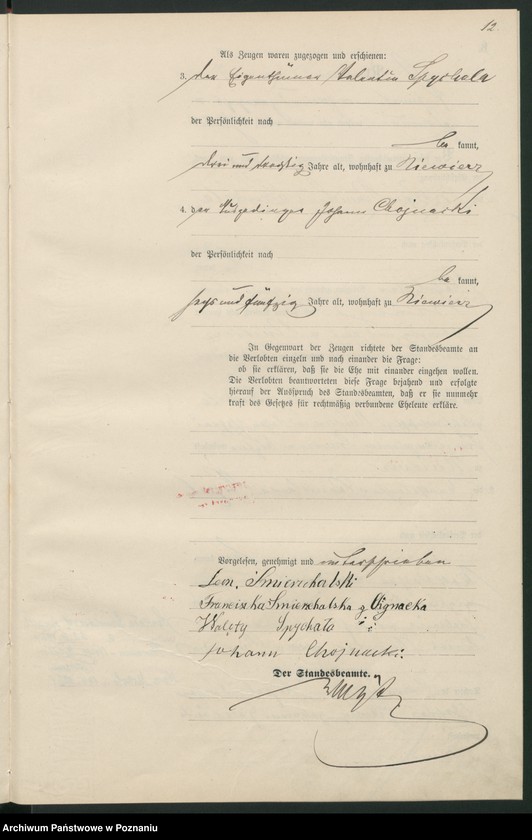 12.
Als Zeugen waren zugezogen und erschienen:
3. der Eigenthümer Valentin Spychala
der Persönlichkeit nach
be kannt,
drei und dreißig Jahre alt, wohnhaft zu Niewierz
4. der Ausgedinger Johann Chojnacki
der Persönlichkeit nach
be kannt,
sechs und fünfzig Jahre alt, wohnhaft zu Niewierz
In Gegenwart der Zeugen richtete der Standesbeamte an
die Verlobten einzeln und nach einander die Frage:
ob sie erklären, daß sie die Ehe mit einander eingehen wollen.
Die Verlobten beantworteten diese Frage bejahend und erfolgte
hierauf der Ausspruch des Standesbeamten, daß er sie nunmehr
kraft des Gesetzes für rechtmäßig verbundene Eheleute erkläre.
Vorgelesen, genehmigt und unterschrieben
Leon Śmierzchalski
Franciszka Smierzchalska z
Walęty Spychała
Johann Chojnacki.
Der Standesbeamte.
Archiwum Państwowe w Poznaniu